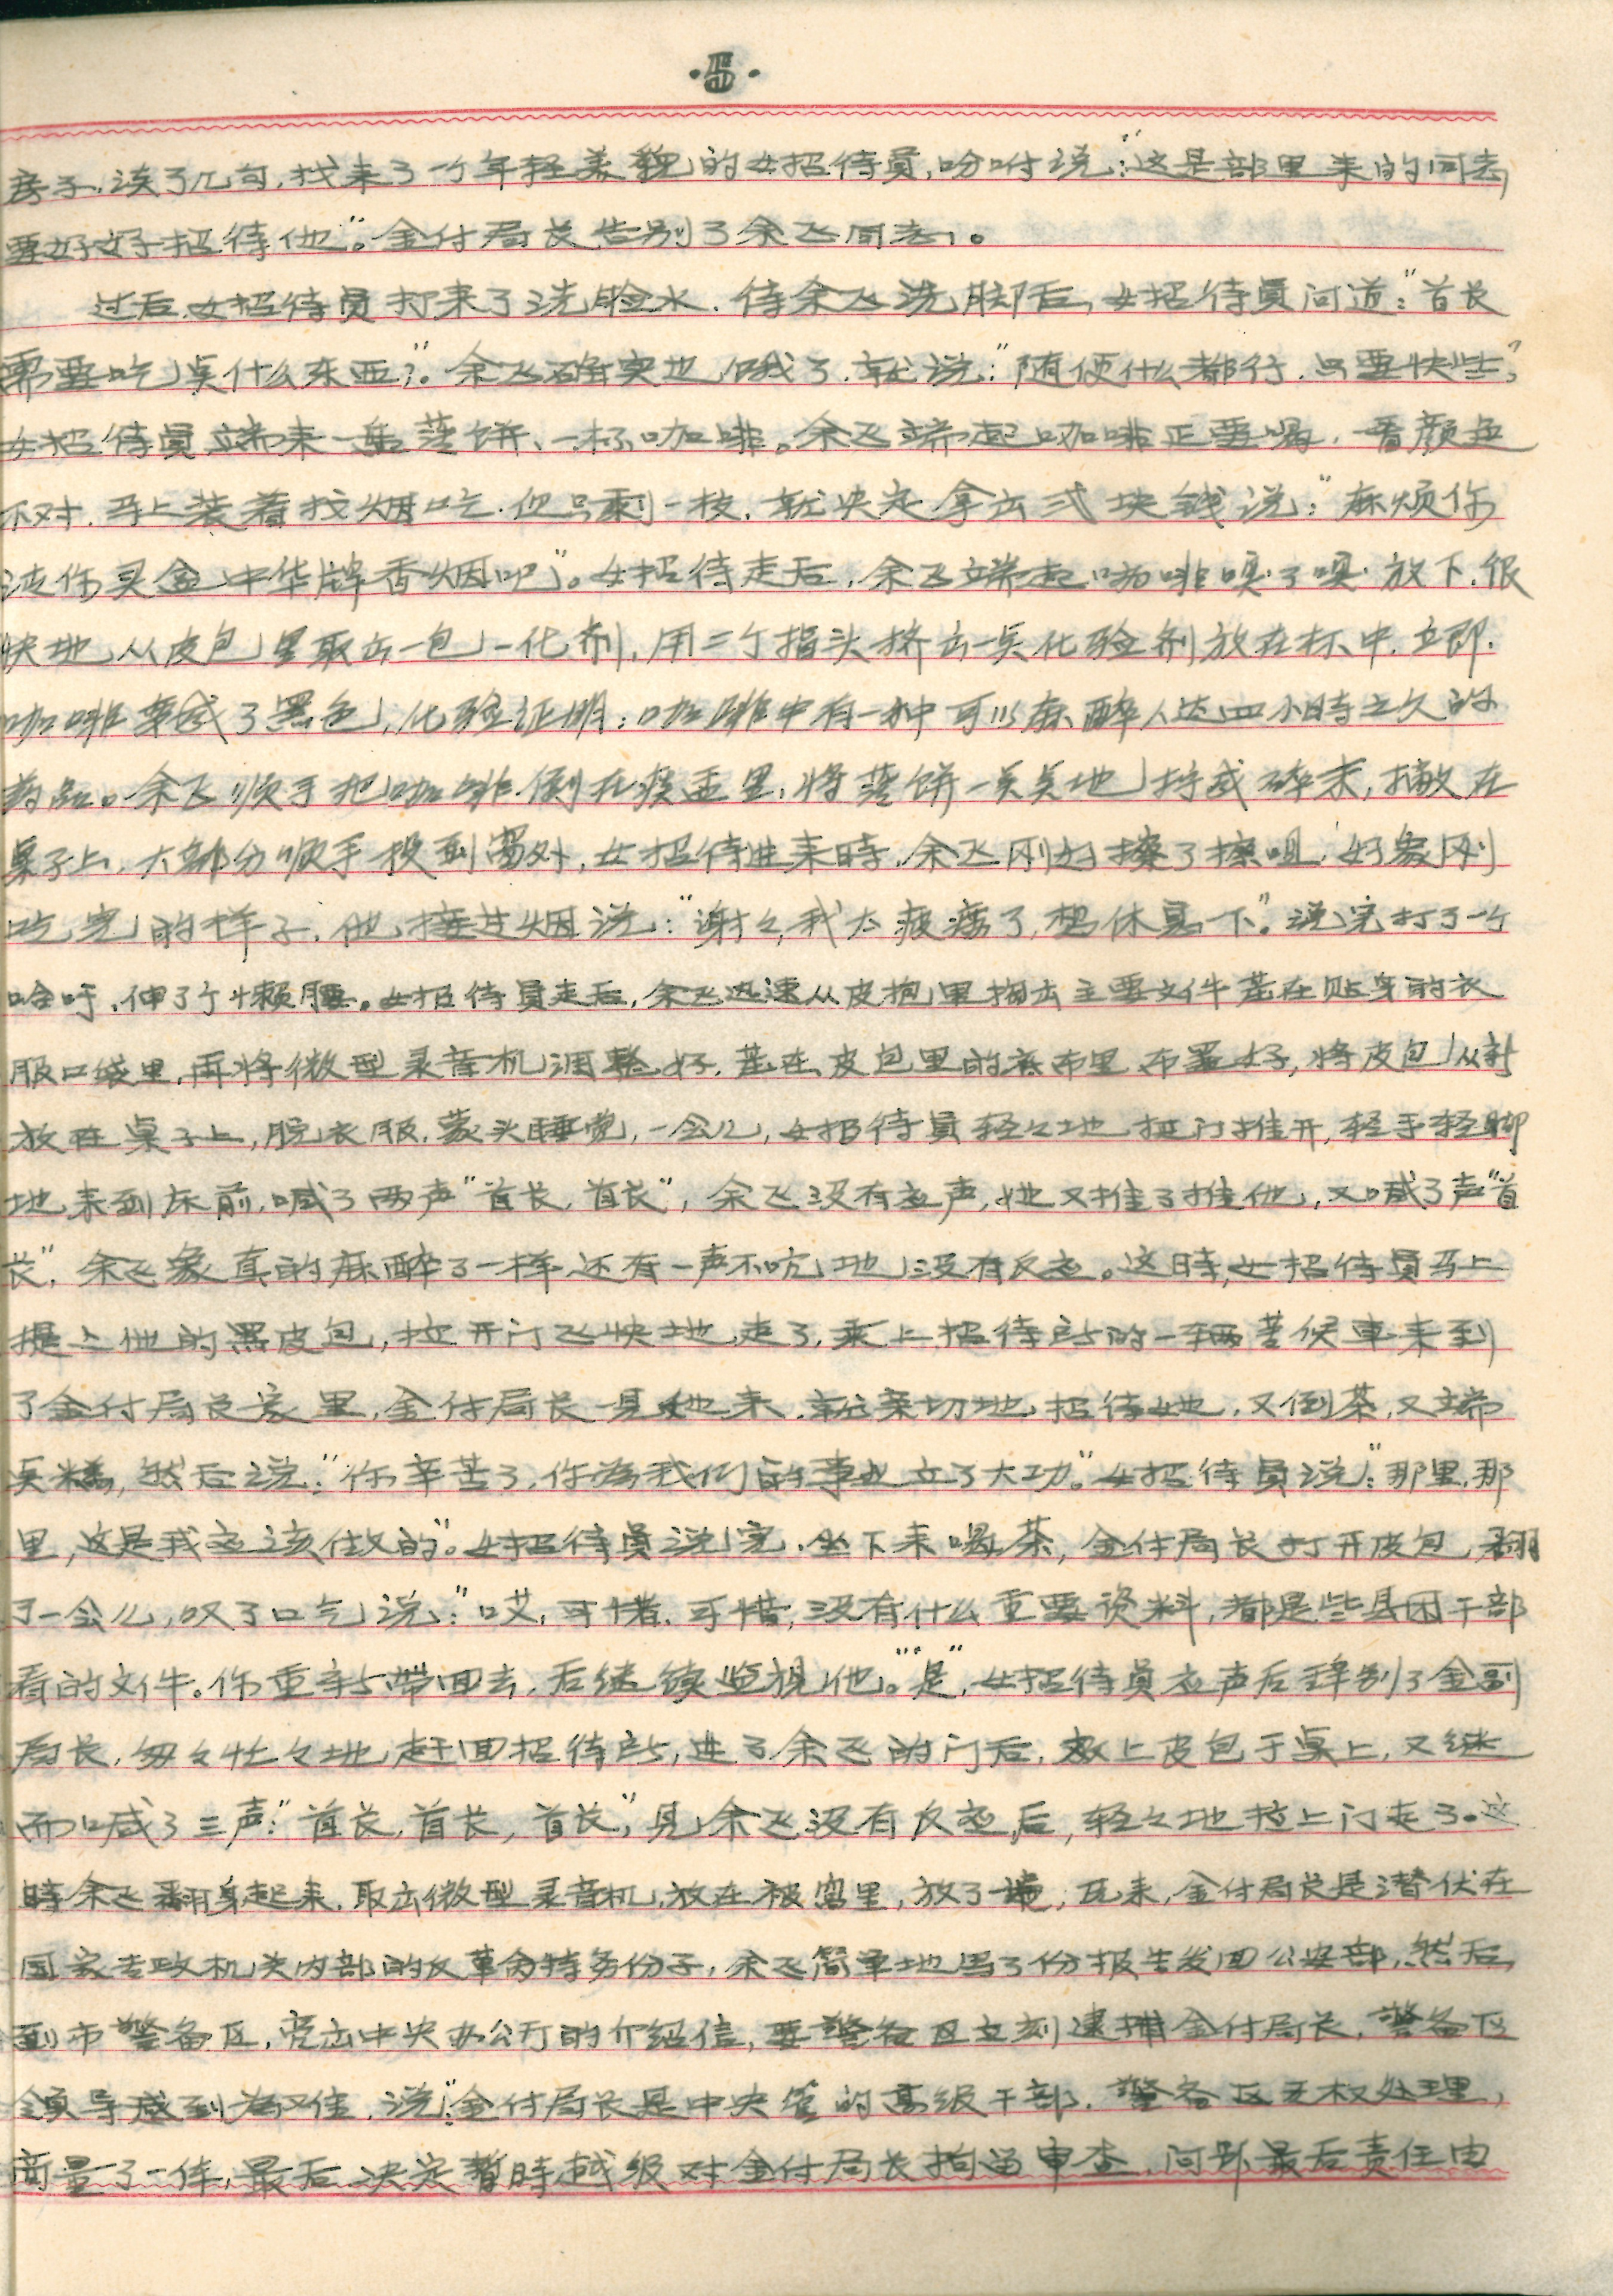 房子,谈了几句,找来了一个年轻美貌的女招待员,吩咐说:“这是部里来的同志,
要好好招待他”。金付局长告别了余飞同志。
过后,女招待员打来了洗脸水.待余飞洗脚后,女招待员问道:“首长
需要吃点什么东西?”。余飞确实也饿了.就说:“随便什么都行.只要快些”
女招待员端来一盘蛋饼、一杯咖啡。余飞端起咖啡正要喝,一看颜色
不对.马上装着找烟吃.但只剩一枝.就决定拿出弍块钱说:“麻烦你
法佈买盒中华牌香烟吧”。女招待走后,余飞端起咖啡嗅了嗅.放下.很
快地从皮包里取出一包一化剂,用二个指头挤出一点化验剂放在杯中.立即.
咖啡变成了黑色,化验证明:咖啡中有一种可以麻醉人达四小時之久的
药品。余飞顺手把咖啡倒在痰盂里,将蛋饼一点点地拧成碎末,撒在
桌子上,大部分顺手投到窗外,女招待进来時,余飞刚好擦了擦咀,好象刚
吃完的样子,他接过烟说:“谢々,我太疲痨了,想休息一下”。说完打了一个
哈吁,伸了个懒腰。女招待员走后,余飞迅速从皮抱里掏出主要文件藏在贴身的衣
服口袋里,再将微型录音机调整好,藏在皮包里的底布里布置好,将皮包从新
放在桌子上,脱衣服,蒙头睡觉,一会儿,女招待员轻々地把门推开,轻手轻脚
地来到床前,喊了两声“首长,首长”,余飞没有应声,她又推了推他,又喊了声“首
长”,余飞象真的麻醉了一样还有一声不吭地没有反应。这時,女招待员马上
提上他的黑皮包,拉开门飞快地走了,乘上招待所的一辆等候車来到
了金付局长家里,金付局长見她来.就亲切地招待她,又倒茶,又端
点糕,然后说:“你辛苦了,你為我们的事业立了大功。”女招待员说:“那里,那
里,这是我应该做的”。女招待员说完,坐下来喝茶,金付局长打开皮包,翻
了一会儿,叹了口气说:“哎,可惜,可惜,没有什么重要资料,都是些县团干部
看的文件。你重新带回去,后继续监视他。”“是”,女招待员应声后辞别了金副
局长,匆々忙々地赶回招待所,进了余飞的门后,放上皮包于桌上,又继
而喊了三声:“首长,首长,首长”,見余飞没有反应后,轻々地拉上门走了。这
時余飞翻身起来,取出微型录音机,放在被窝里,放了一遍,原来,金付局长是潜伏在
国家专政机关内部的反革命特务份子,余飞简单地写了份报告发回公安部,然后,
到市警备区,亮出中央办公厅的介绍信,要警备区立刻逮捕金付局长,警备区
领导感到為难,说:“金付局长是中央管的高级干部,警备区无权处理,
商量了一阵,最后决定暂時越级对金付局长拘留审查,问题最后责任由